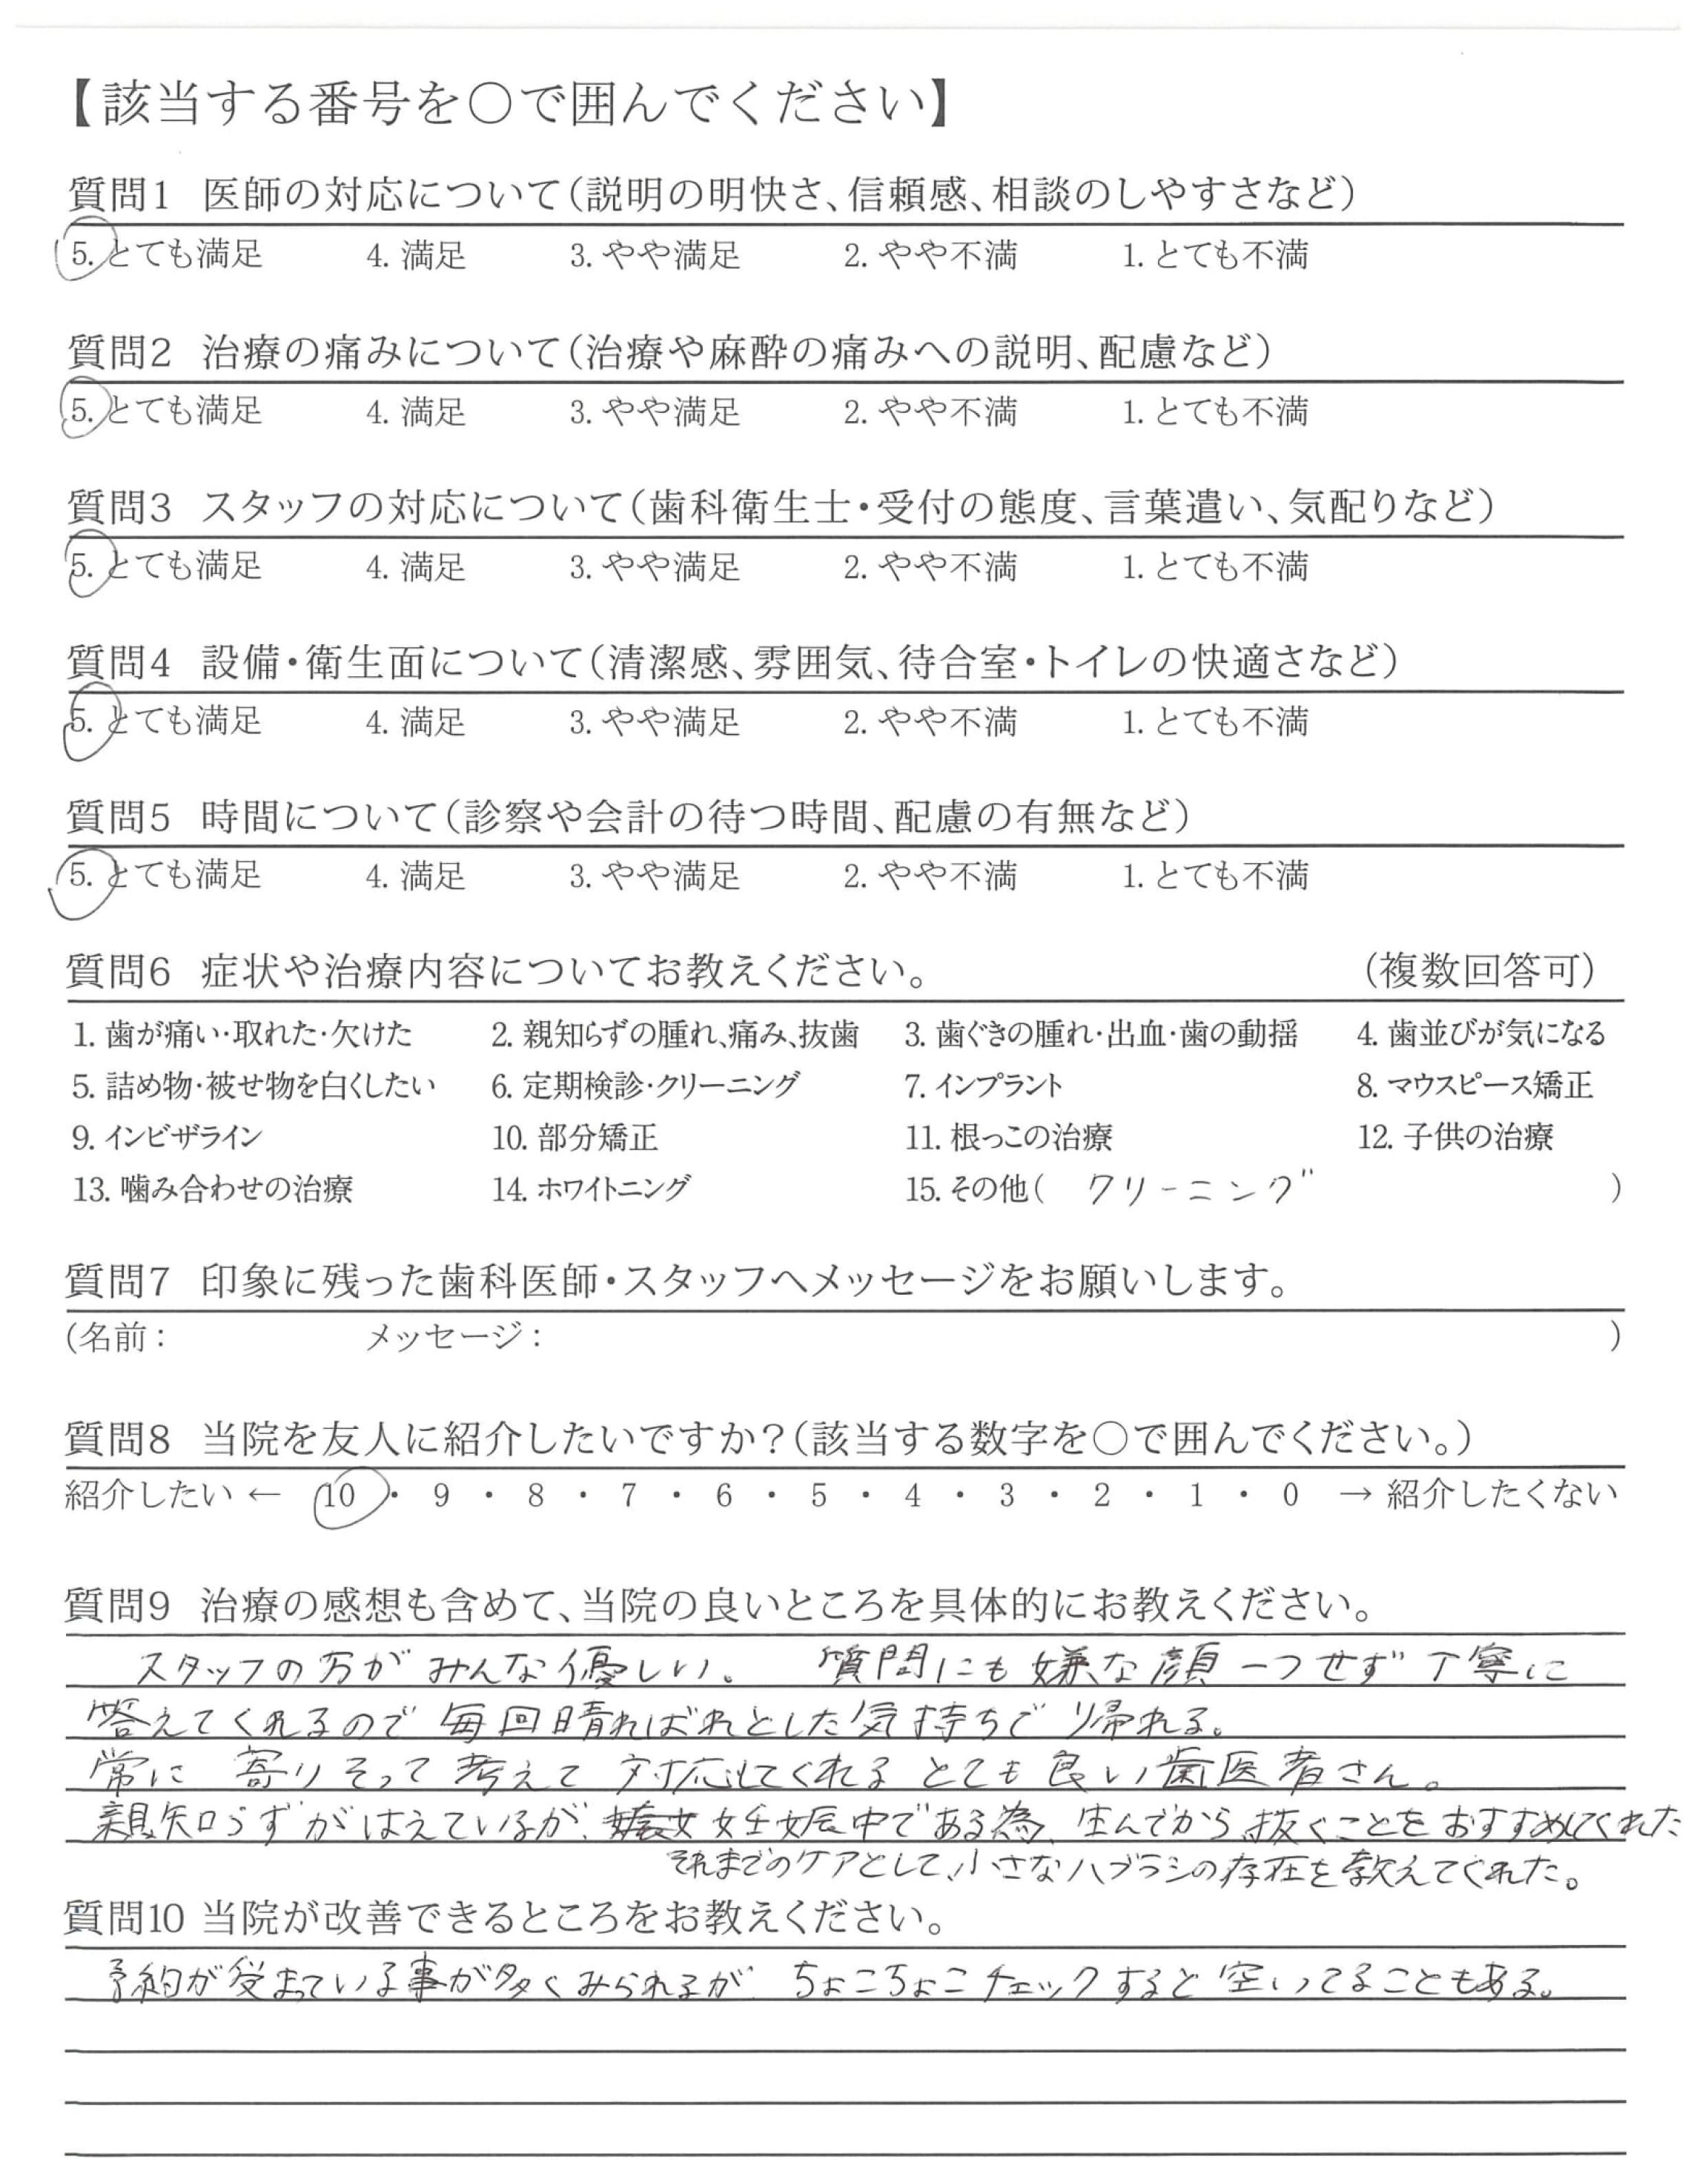 【該当する番号を〇で囲んでください】
質問1 医師の対応について(説明の明快さ、信頼感、相談のしやすさなど)
5. とても満足 4. 満足 3. やや満足 2. やや不満 1. とても不満
質問2 治療の痛みについて(治療や麻酔の痛みへの説明、配慮など)
5. とても満足 4. 満足 3. やや満足 2. やや不満 1. とても不満
質問3 スタッフの対応について(歯科衛生士・受付の態度、言葉遣い、気配りなど)
5. とても満足 4. 満足 3. やや満足 2. やや不満 1. とても不満
質問4 設備・衛生面について(清潔感、雰囲気、待合室・トイレの快適さなど)
5. とても満足 4. 満足 3. やや満足 2. やや不満 1. とても不満
質問5 時間について(診察や会計の待つ時間、配慮の有無など)
5. とても満足 4. 満足 3. やや満足 2. やや不満 1. とても不満
質問6 症状や治療内容についてお教えください。 (複数回答可)
1. 歯が痛い・取れた・欠けた 2. 親知らずの腫れ、痛み、抜歯 3. 歯ぐきの腫れ・出血・歯の動揺 4. 歯並びが気になる
5. 詰め物・被せ物を白くしたい 6. 定期検診・クリーニング 7. インプラント 8. マウスピース矯正
9. インビザライン 10. 部分矯正 11. 根っこの治療 12. 子供の治療
13. 噛み合わせの治療 14. ホワイトニング 15. その他( クリーニング )
質問7 印象に残った歯科医師・スタッフへメッセージをお願いします。
(名前: メッセージ: )
質問8 当院を友人に紹介したいですか?(該当する数字を〇で囲んでください。)
紹介したい ← 10 ・ 9 ・ 8 ・ 7 ・ 6 ・ 5 ・ 4 ・ 3 ・ 2 ・ 1 ・ 0 → 紹介したくない
質問9 治療の感想も含めて、当院の良いところを具体的にお教えください。
スタッフの方がみんな優しい。 質問にも嫌な顔一つせず丁寧に
答えてくれるので毎回晴ればれとした気持ちで帰れる。
常に 寄りそって考えて対応してくれるとても良い歯医者さん。
親知らずがはえているが、妊娠中である為、生んでから抜くことをおすすめしてくれた
それまでのケアとして、小さなハブラシの存在を教えてくれた。
質問10 当院が改善できるところをお教えください。
予約が埋まっている事が多くみられるが ちょこちょこチェックすると空いてることもある。